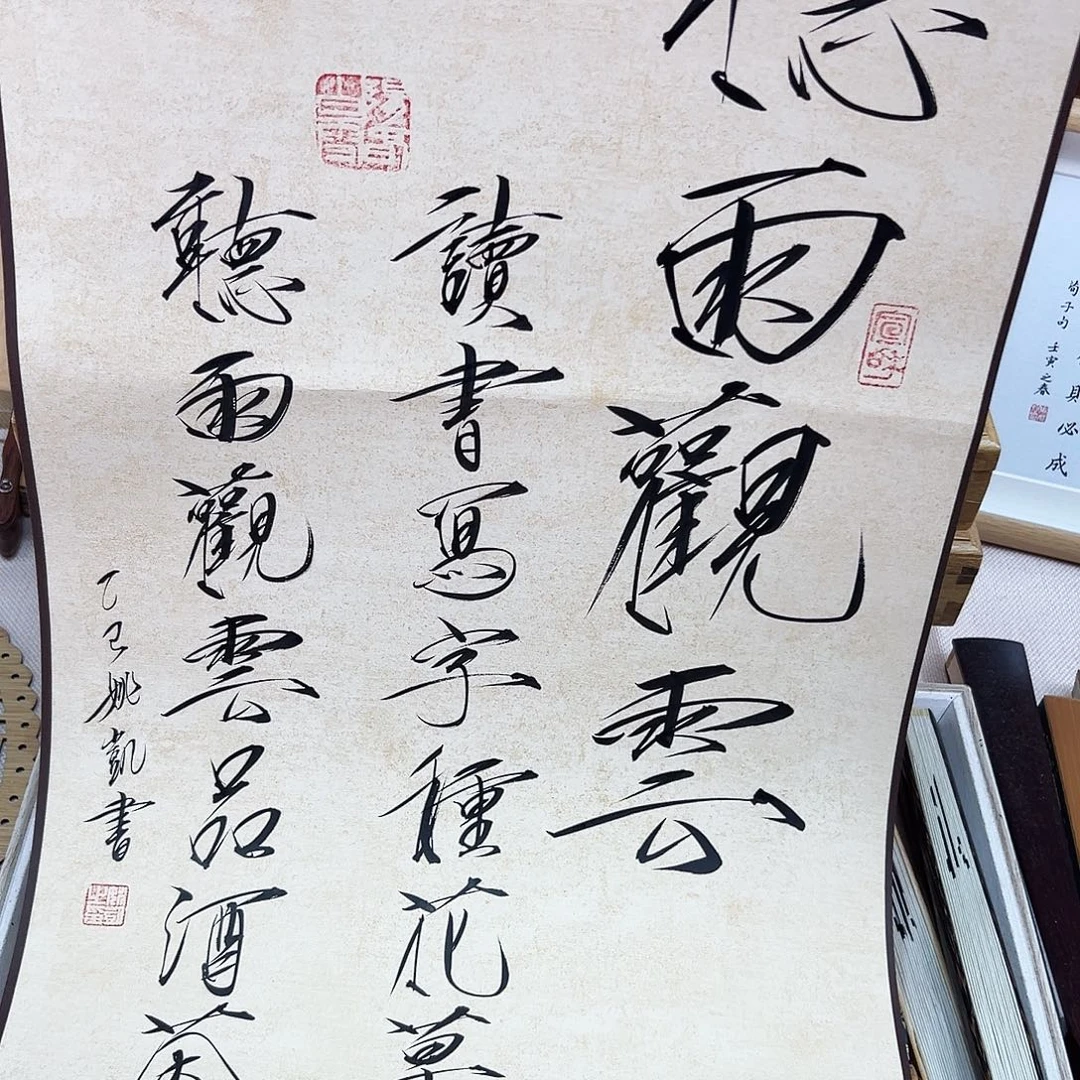 聽雨觀雲
讀書寫字種花草
聽雨觀雲品酒茶
乙巳姚凱書
荀子句 壬寅之春
則必成